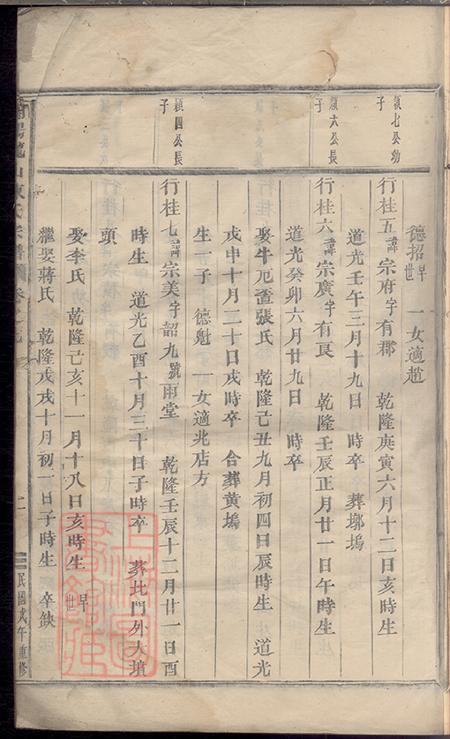 德招早世 一女適趙
禎七公幼子
行桂五諱宗府字有郡 乾隆庚寅六月十二日亥時生
道光壬午三月十九日 時卒 葬墎塢
禎六公長子
行桂六諱宗廣字有良 乾隆壬辰正月廿一日午時生
道光癸卯六月廿九日 時卒
娶牛厄畬張氏 乾隆己丑九月初四日辰時生 道光
戊申十月二十日戌時卒 合葬黄塢
生一子 德魁 一女適兆店方
禎四公長子
行桂七諱宗美字韶九號雨堂 乾隆壬辰十二月廿一日酉
時生 道光乙酉十月三十日子時卒 葬北門外大墳
頭
娶李氏 乾隆己亥十一月十八日亥時生 早世
繼娶蔣氏 乾隆戊戌十月初一日子時生 卒缺
氏宗譜
二
民國戊午重修